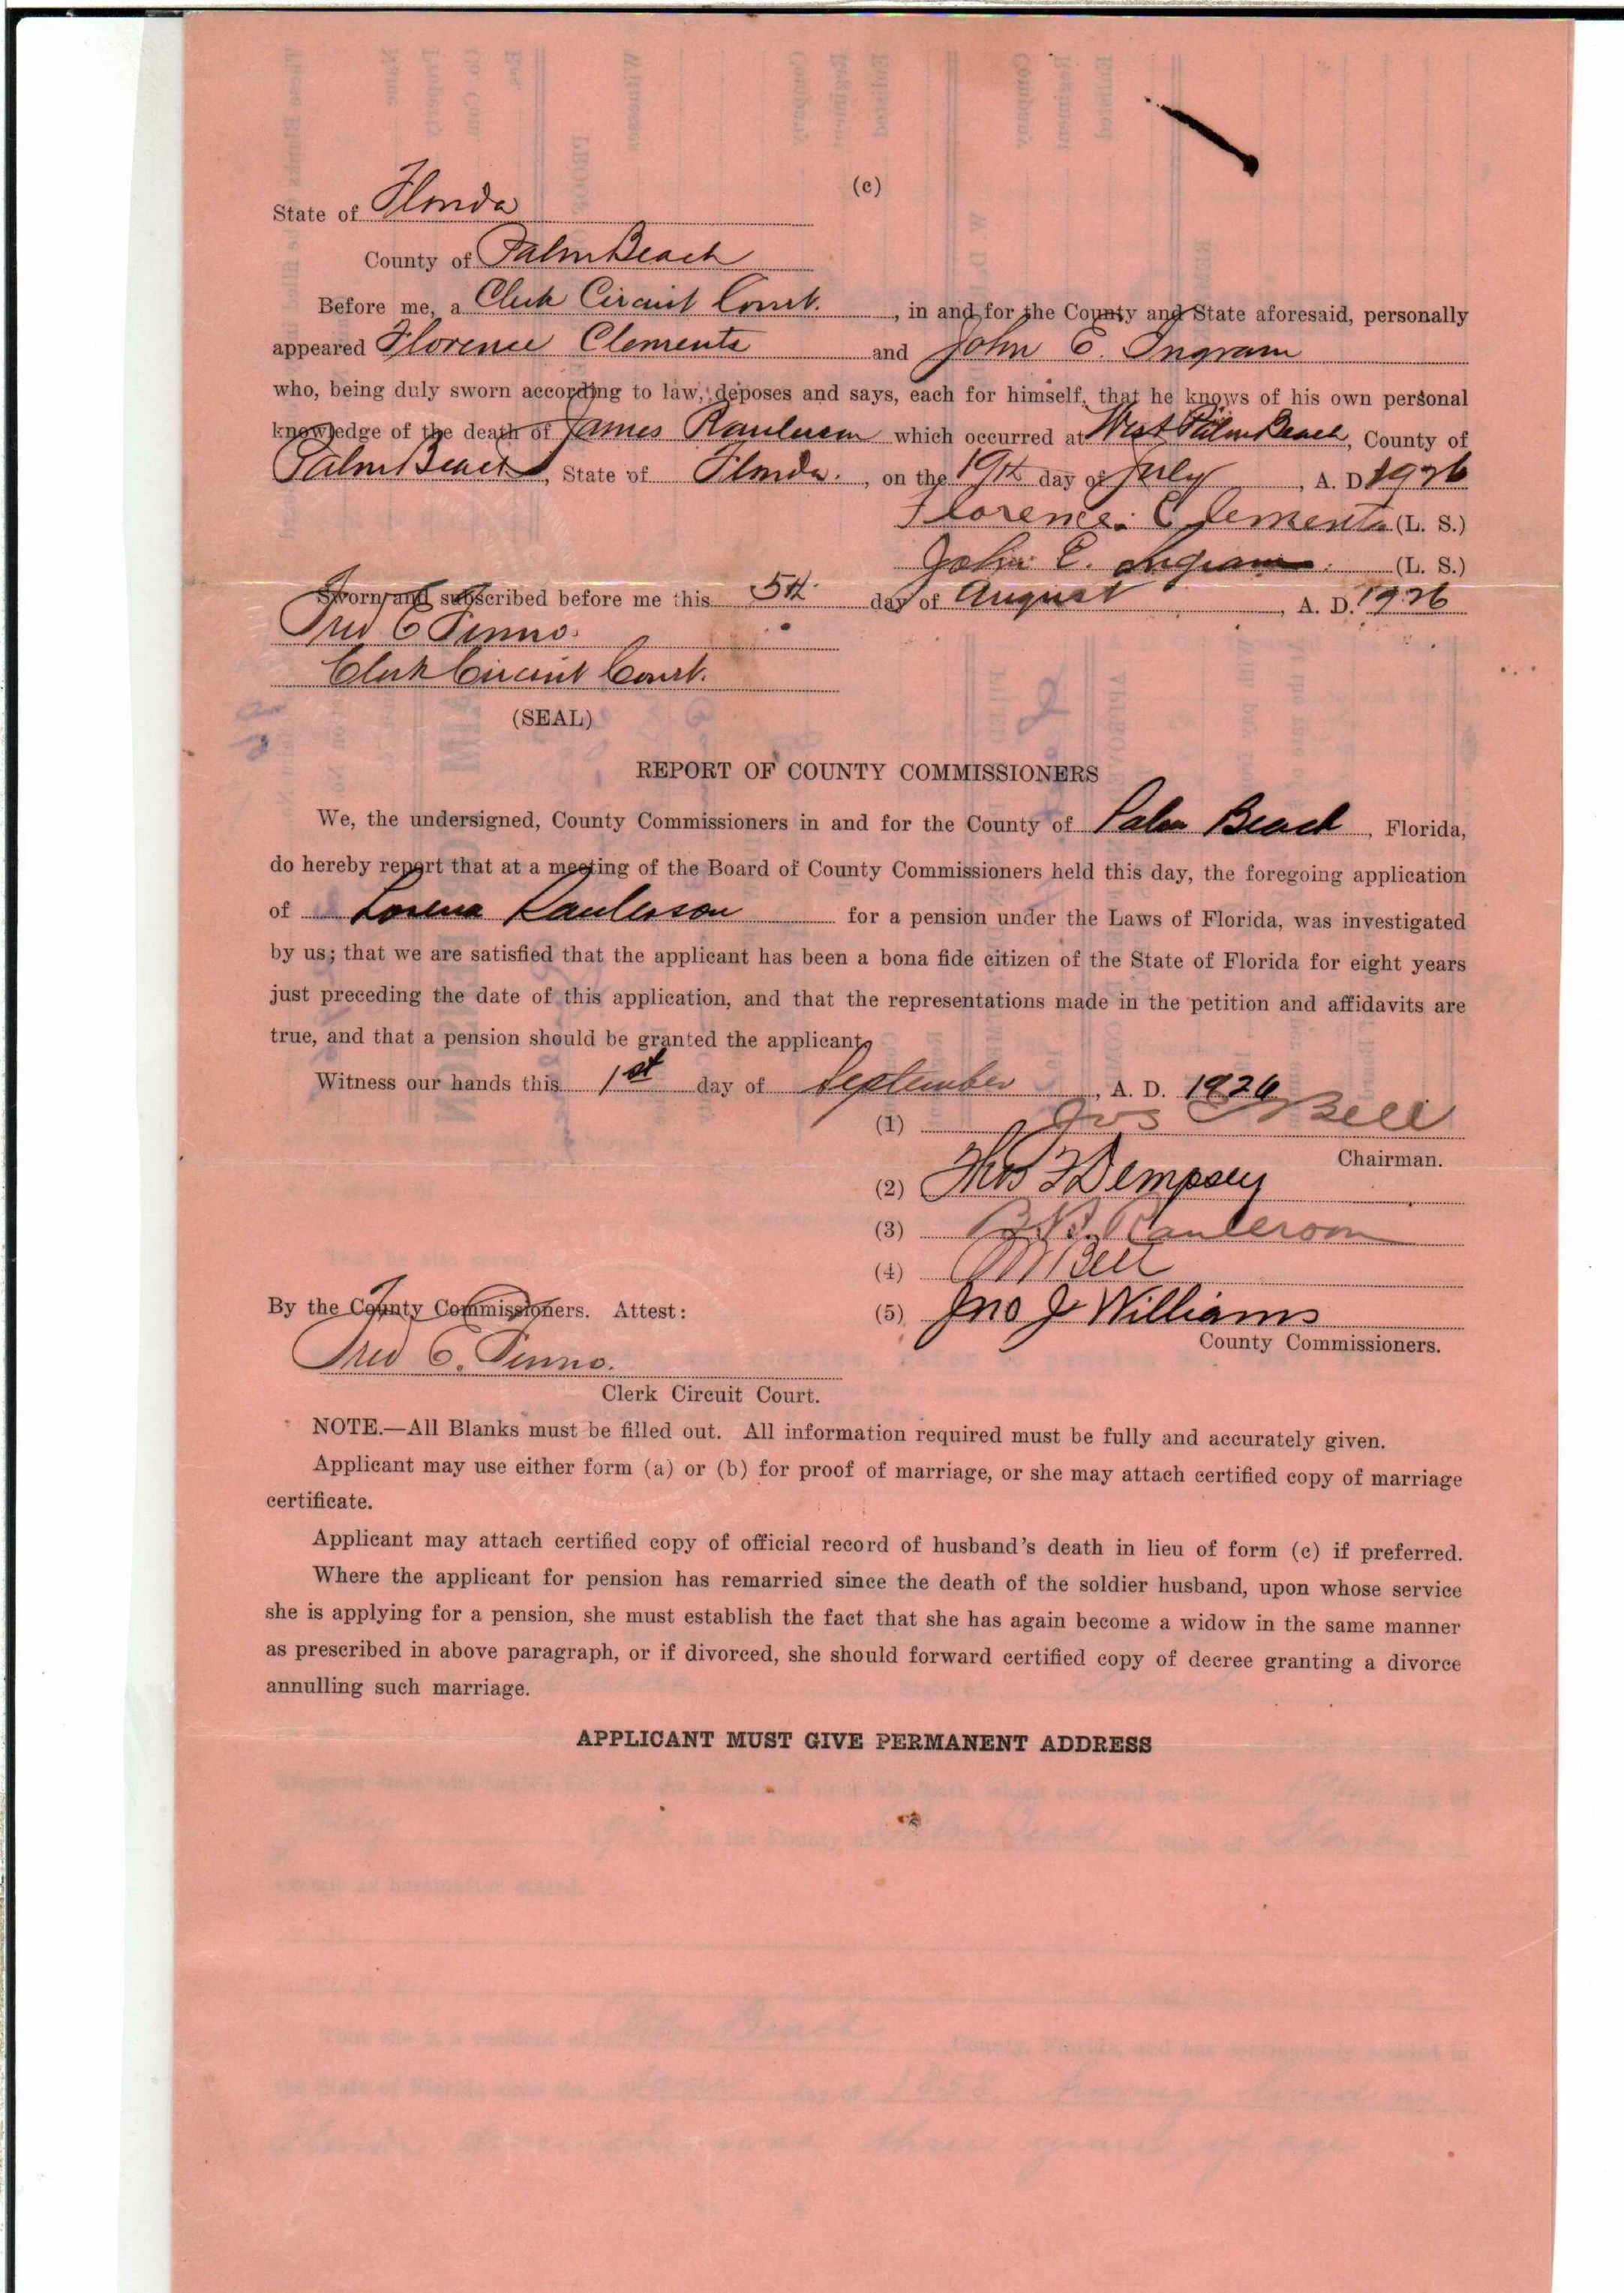 (c)
State of Florida
County of Palm Beach
Before me, a Clerk Circuit Court. , in and for the County and State aforesaid, personally
appeared Florence Clements and John E. Ingram
who, being duly sworn according to law, deposes and says, each for himself, that he knows of his own personal
knowledge of the death of James Raulerson which occurred at West Palm Beach, County of
Palm Beach, State of Florida. , on the 19th day of July , A. D. 1926
Florence. Clements (L. S.)
John E. Ingram. (L. S.)
Sworn and subscribed before me this 5th. day of August , A. D. 1926
Fred E Fenno.
Clerk Circuit Court.
(SEAL)
REPORT OF COUNTY COMMISSIONERS
We, the undersigned, County Commissioners in and for the County of Palm Beach , Florida,
do hereby report that at a meeting of the Board of County Commissioners held this day, the foregoing application
of Lorena Raulerson for a pension under the Laws of Florida, was investigated
by us; that we are satisfied that the applicant has been a bona fide citizen of the State of Florida for eight years
just preceding the date of this application, and that the representations made in the petition and affidavits are
true, and that a pension should be granted the applicant.
Witness our hands this 1st day of September , A. D. 1926
(1) Jos Bell
Chairman.
(2) Thos F Dempsey
(3) Raulerson
(4) Bell
By the County Commissioners. Attest:
(5) Jno J Williams
County Commissioners.
Fred E. Fenno.
Clerk Circuit Court.
NOTE.—All Blanks must be filled out. All information required must be fully and accurately given.
Applicant may use either form (a) or (b) for proof of marriage, or she may attach certified copy of marriage
certificate.
Applicant may attach certified copy of official record of husband's death in lieu of form (c) if preferred.
Where the applicant for pension has remarried since the death of the soldier husband, upon whose service
she is applying for a pension, she must establish the fact that she has again become a widow in the same manner
as prescribed in above paragraph, or if divorced, she should forward certified copy of decree granting a divorce
annulling such marriage.
APPLICANT MUST GIVE PERMANENT ADDRESS